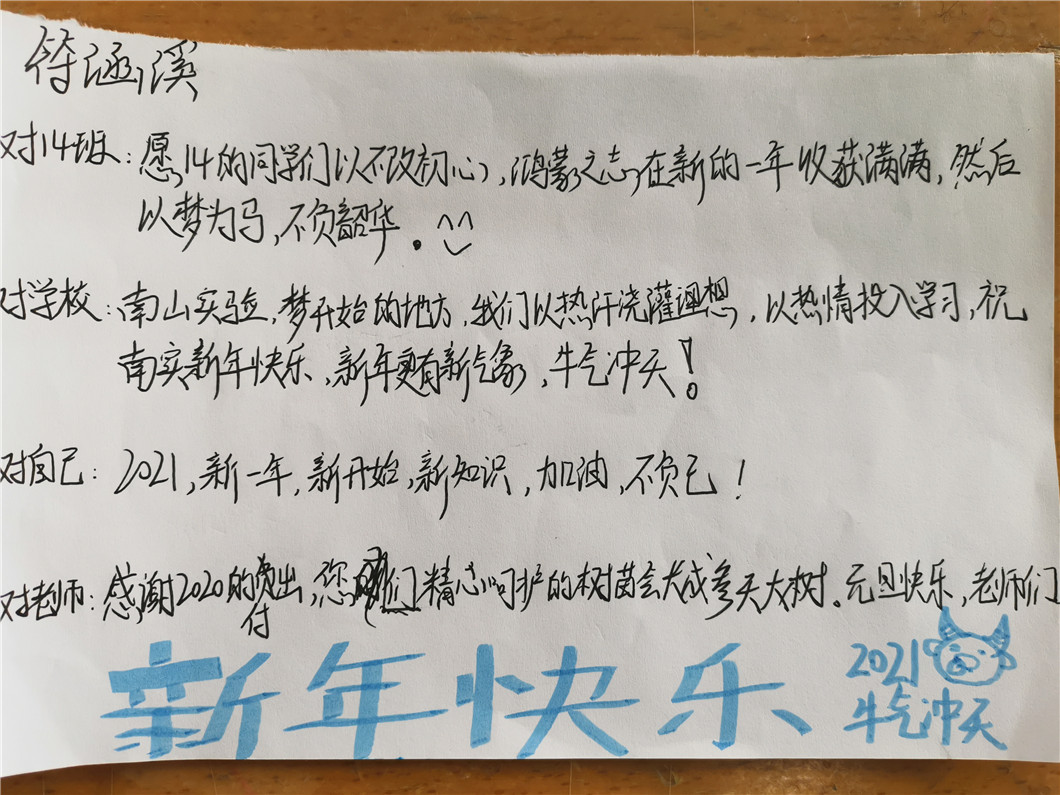 符涵溪
对14班：愿14的同学们以不改初心，鸿蒙之志在新的一年收获满满，然后
以梦为马，不负韶华。^^
对学校：南山实验，梦开始的地方，我们以热汗浇灌理想，以热情投入学习，祝
南实新年快乐，新年更有新气象，牛气冲天！
对自己：2021，新一年，新开始，新知识，加油，不负己！
对老师：感谢2020的付出，您们精心呵护的树苗会长成参天大树。元旦快乐，老师们
新年快乐
2021
牛气冲天